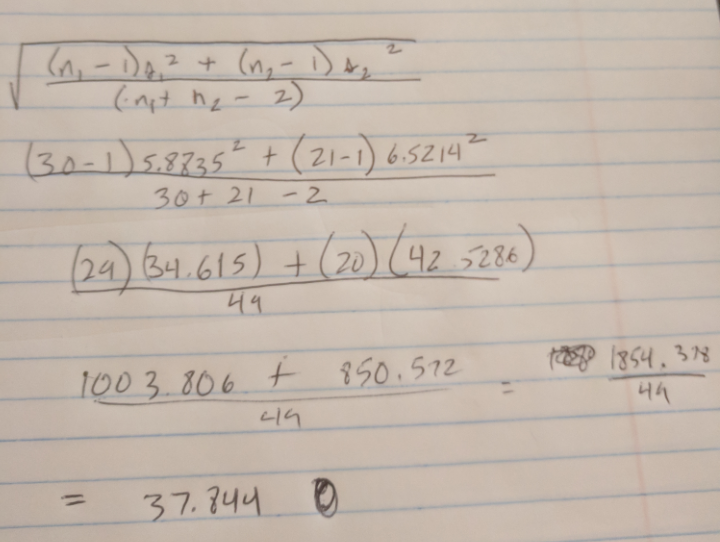 √((n₁ - 1)s₁² + (n₂ - 1)s₂²
(n₁ + n₂ - 2)
(30-1) 5.8835² + (21-1) 6.5214²
30 + 21 - 2
(29)(34.615) + (20)(42.5286)
49
1003.806 + 850.572 = 1854.378
49 49
= 37.844